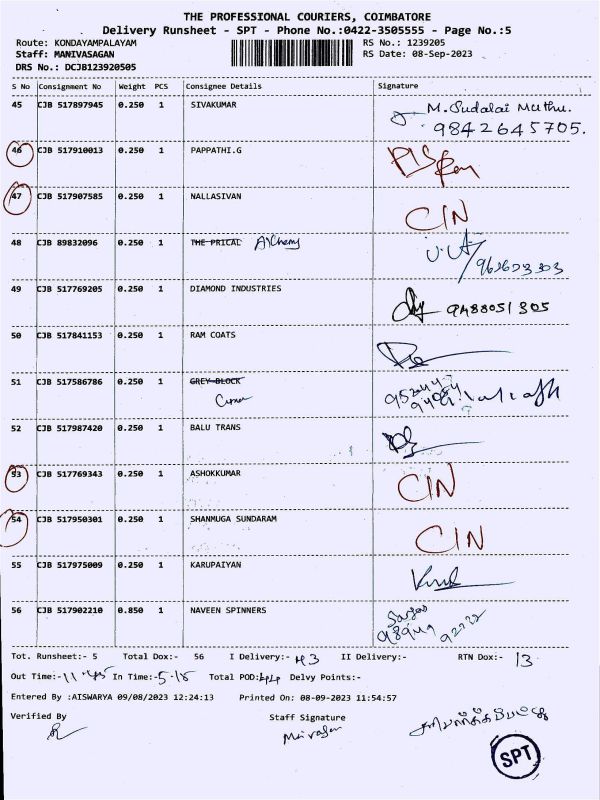 THE PROFESSIONAL COURIERS, COIMBATORE
Delivery Runsheet - SPT - Phone No.:0422-3505555 - Page No.:5
Route: KONDAYAMPALAYAM RS No.: 1239205
Staff: MANIVASAGAN RS Date: 08-Sep-2023
DRS No.: DCJB123920505
S No Consignment No Weight PCS Consignee Details Signature
45 CJB 517897945 0.250 1 SIVAKUMAR M. Sudalai Muthu.
9842645705.
46 CJB 517910013 0.250 1 PAPPATHI.G
47 CJB 517907585 0.250 1 NALLASIVAN CIN
48 CJB 89832096 0.250 1 THE PRICAL Alchemy
49 CJB 517769205 0.250 1 DIAMOND INDUSTRIES 9488051305
50 CJB 517841153 0.250 1 RAM COATS
51 CJB 517586786 0.250 1 GREY BLOCK
52 CJB 517987420 0.250 1 BALU TRANS
53 CJB 517769343 0.250 1 ASHOKKUMAR CIN
54 CJB 517950301 0.250 1 SHANMUGA SUNDARAM CIN
55 CJB 517975009 0.250 1 KARUPAIYAN
56 CJB 517902210 0.850 1 NAVEEN SPINNERS
Tot. Runsheet:- 5 Total Dox:- 56 I Delivery:- 43 II Delivery:- RTN Dox:- 13
Out Time:- 11.45 In Time:- 5.15 Total POD: 44 Delvy Points:-
Entered By :AISWARYA 09/08/2023 12:24:13 Printed On: 08-09-2023 11:54:57
Verified By Staff Signature
SPT